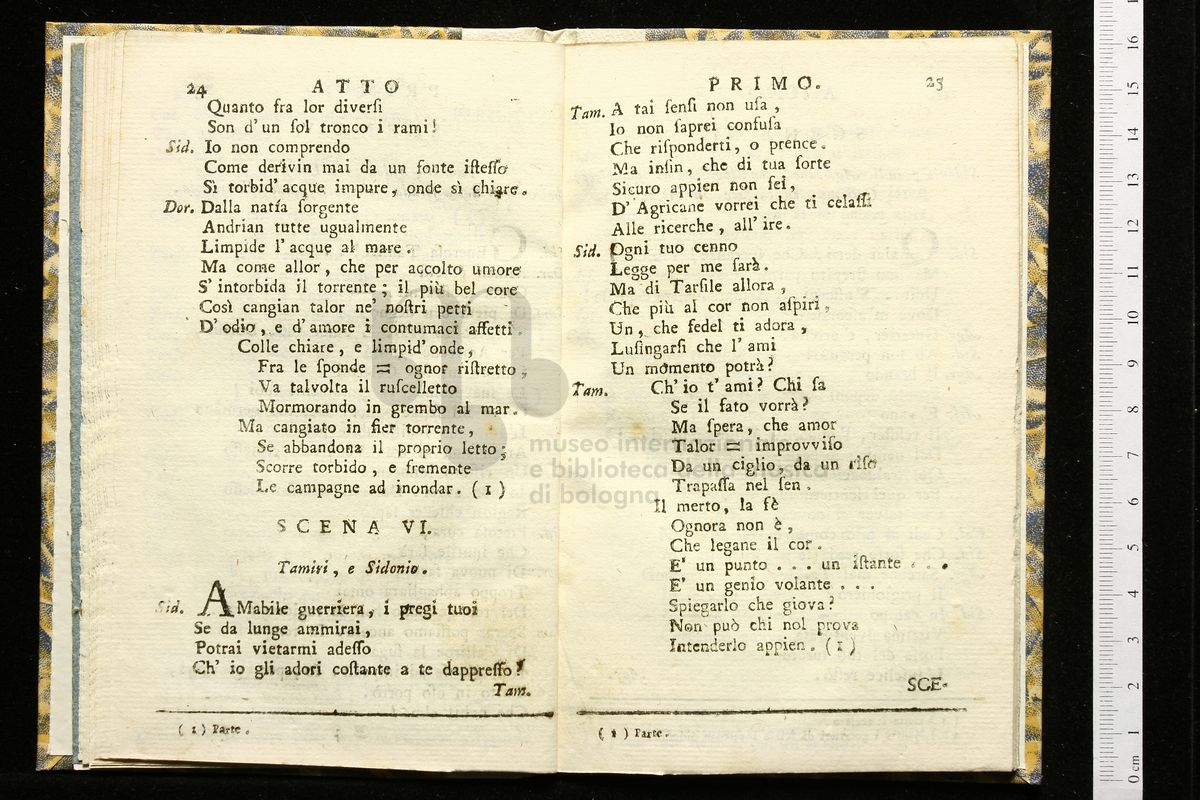 24 ATTO
Quanto fra lor diverſi
Son d'un ſol tronco i rami!
Sid. Io non comprendo
Come derivin mai da un fonte iſteſſo
Sì torbid' acque impure, onde sì chiare.
Dor. Dalla natía ſorgente
Andrian tutte ugualmente
Limpide l'acque al mare.
Ma come allor, che per accolto umore
S'intorbida il torrente; il più bel core
Così cangian talor ne' noſtri petti
D'odio, e d'amore i contumaci affetti.
Colle chiare, e limpid' onde,
Fra le ſponde = ognor riſtretto,
Va talvolta il ruſcelletto
Mormorando in grembo al mar.
Ma cangiato in fier torrente,
Se abbandona il proprio letto;
Scorre torbido, e fremente
Le campagne ad inondar. (1)
SCENA VI.
Tamiri, e Sidonio.
Sid. AMabile guerriera, i pregi tuoi
Se da lunge ammirai,
Potrai vietarmi adeſſo
Ch' io gli adori coſtante a te dappreſſo?
Tam.
(1) Parte.
PRIMO. 25
Tam. A tai ſenſi non uſa,
Io non ſaprei confuſa
Che riſponderti, o prence.
Ma inſin, che di tua ſorte
Sicuro appien non ſei,
D'Agricane vorrei che ti celaſſi
Alle ricerche, all' ire.
Sid. Ogni tuo cenno
Legge per me ſarà.
Ma di Tarſile allora,
Che più al cor non aſpiri,
Un, che fedel ti adora,
Luſingarſi che l'ami
Un momento potrà?
Tam. Ch' io t' ami? Chi ſa
Se il fato vorrà?
Ma ſpera, che amor
Talor = improvviſo
Da un ciglio, da un riſo
Trapaſſa nel ſen.
Il merto, la fè
Ognora non è,
Che legane il cor.
E' un punto . . . un iſtante . . .
E' un genio volante . . .
Spiegarlo che giova?
Non può chi nol prova
Intenderlo appien. (1)
SCE-
(1) Parte.
museo internazionale
e biblioteca della musica
di bologna